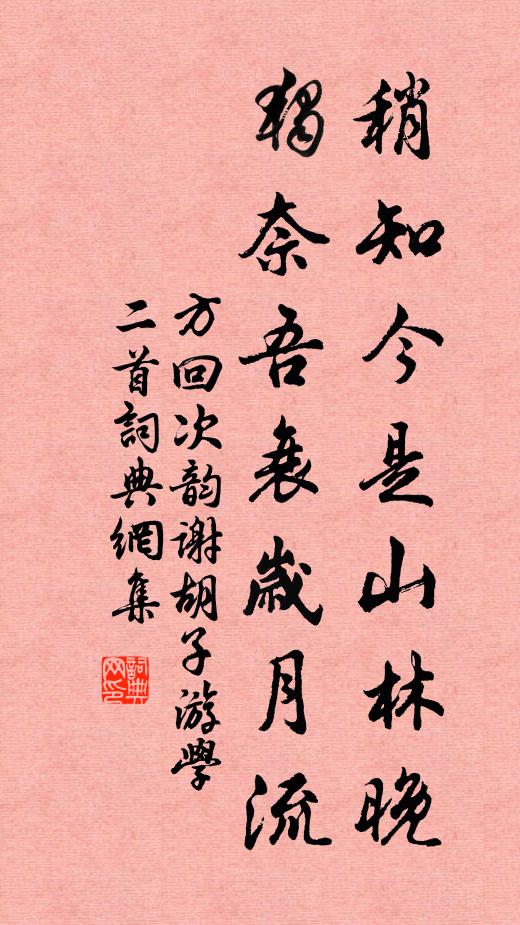 稍知今是山林晚
獨奈吾衰歲月流
方回次韵谢胡子游學
二首詞典網集
詞典网印